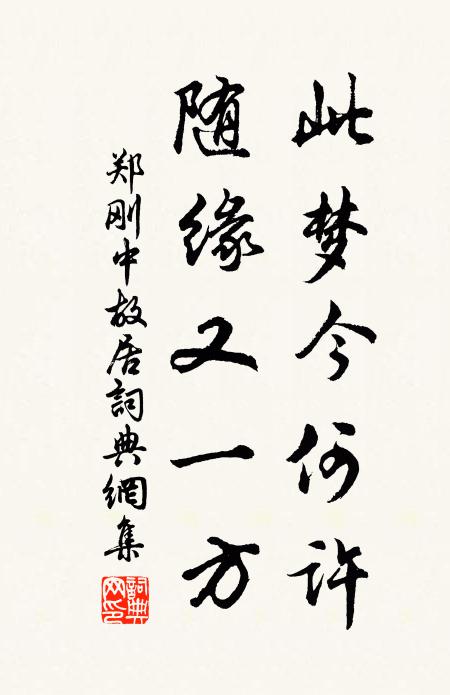 此梦今何许
随缘又一方
郑刚中故居詞典網集
詞典网印